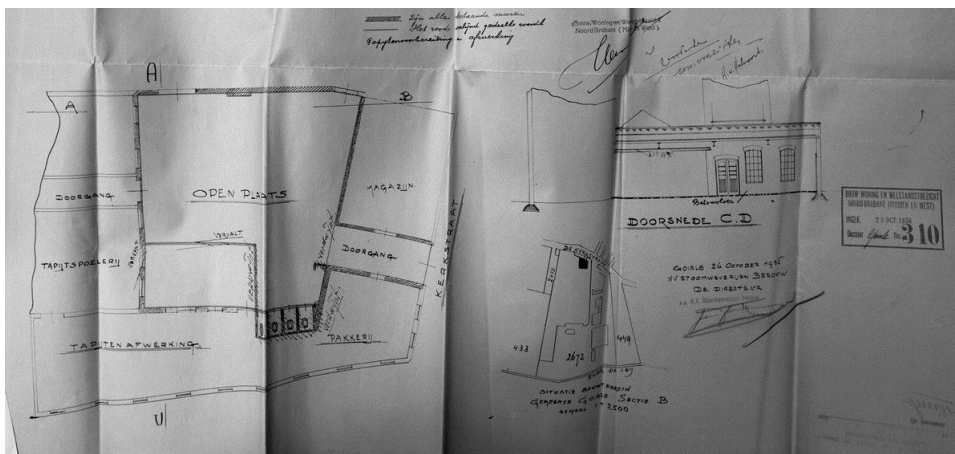 Zijn alle bestaande muren
Het rood omlijnd gedeelte wordt
Tapijtenvoorbereiding en afwerking
Bouw, Woning en Welstandstoezicht
Noord Brabant
A
A
B
DOORGANG
OPEN PLAATS
MAGAZIJN
VERVALT
VERVALT
DOORGANG
TAPIJTSPOELERIJ
KERKSTRAAT
TAPIJTEN AFWERKING
PAKKERIJ
U
Betonvloer
DOORSNEDE C.D
BOUW WONING EN WELSTANDSTOEZICHT
NOORD BRABANT (MIDDEN EN WEST)
INGEK. 29 OCT. 1936
Dossier No. 310
GOIRLE 26 OCTOBER 1936
NV STOOMWEVERIJEN BESOUW
DE DIRECTEUR
433
2672
449
SITUATIE BOUWTERREIN
GEMEENTE GOIRLE SECTIE B
SCHAAL 1 à 2500